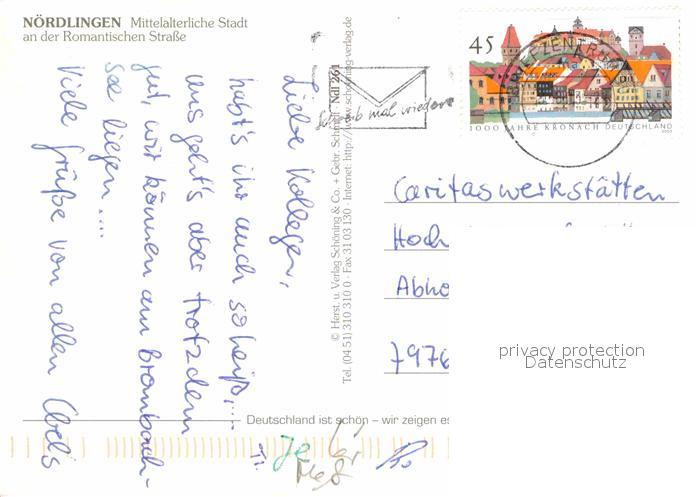 NÖRDLINGEN Mittelalterliche Stadt
an der Romantischen Straße
Liebe Kollegen,
habt's ihr auch so heiß....
uns geht's aber trotzdem
gut, wir können am Brombach-
see liegen....
Viele Grüße von allen
© Herst. u. Verlag Schöning & Co. + Gebr. Schmidt
Tel. (04 51) 310 310 0 · Fax 31 03 130 · Internet: http://www.schoening-verlag.de
Schreib mal wieder
45
1000 JAHRE KRONACH DEUTSCHLAND
Caritaswerkstätten
Hoch
Abho
7976
privacy protection
Datenschutz
Deutschland ist schön – wir zeigen es